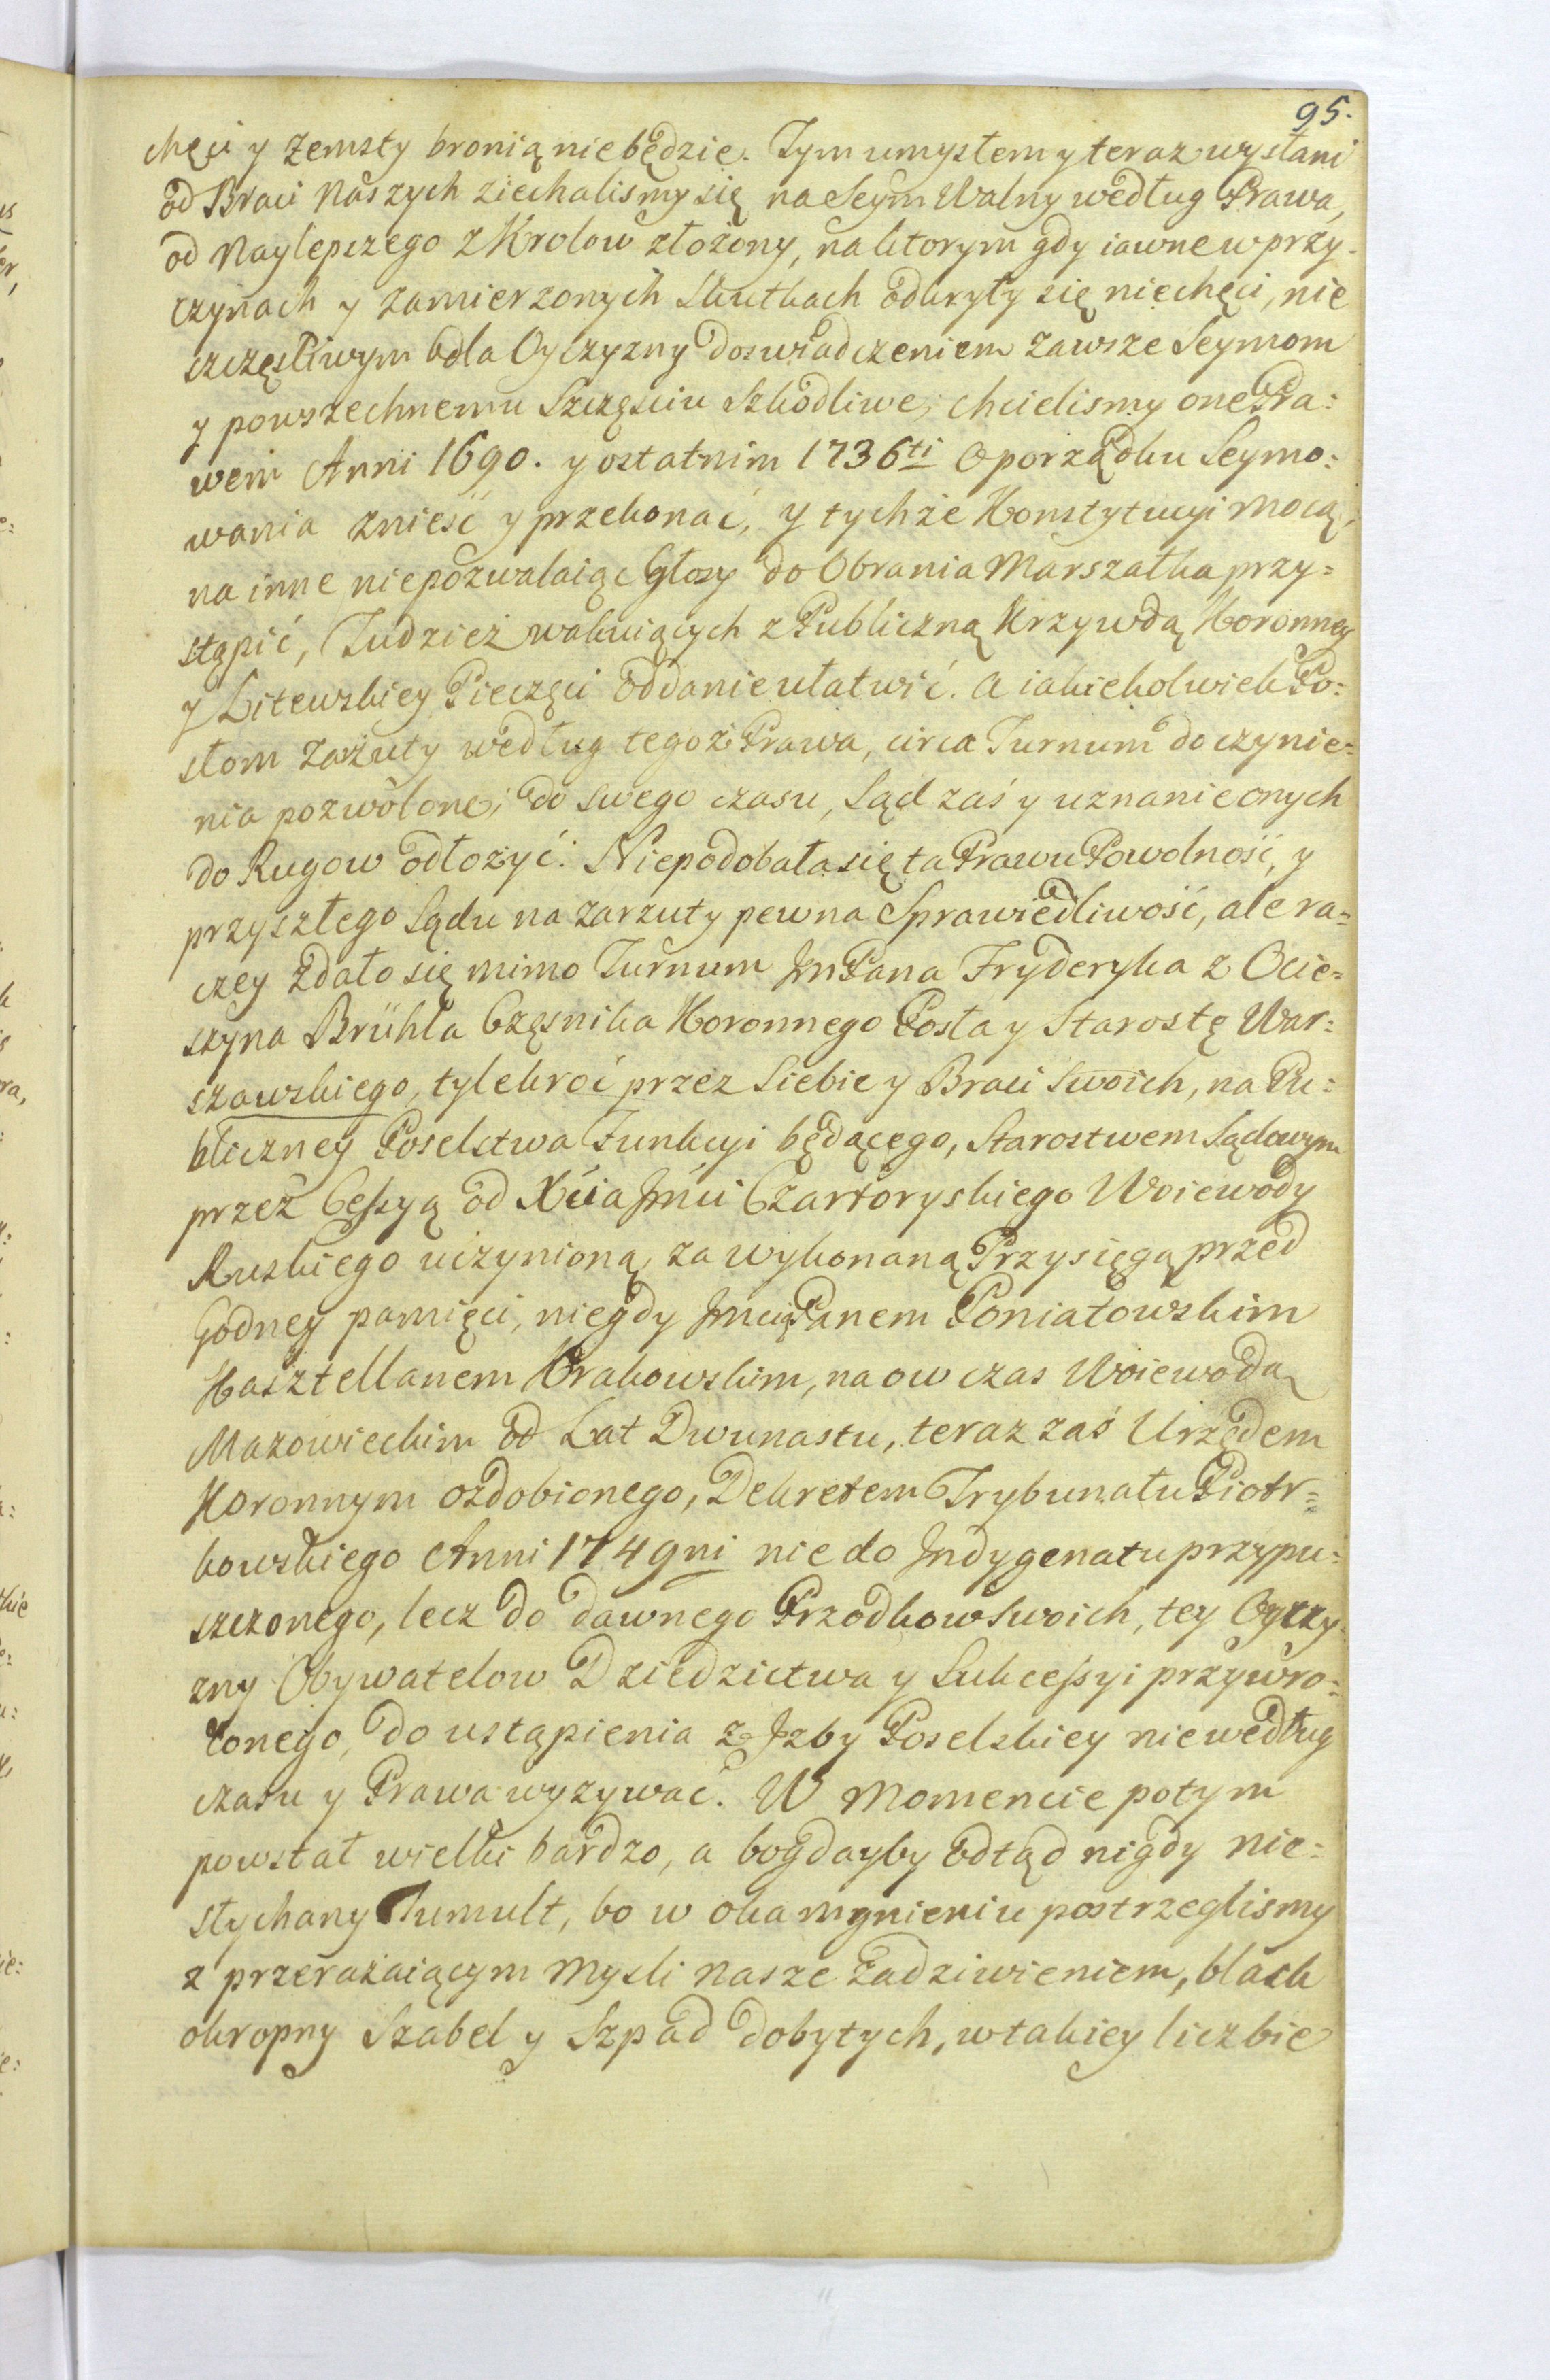 95.
chęci y zemsty bronią nie będzie. Tym umysłem y teraz wysłani
od Braci Naszych ziechalismy się na Seym Walny według Prawa,
od Naylepszego z Krolow złożony, na ktorym gdy iawne w przy-
czynach y zamierzonych Skutkach odkryły się niechęci, nie
szczęsliwym dla Oyczyzny doswiadczeniem zawsze Seymom
y powszechnemu Szczęsciu Szkodliwe; chcielismy one Pra:
wem Anni 1690. y ostatnim 1736ti O porządku Seymo:
wania znieść y przekonać, y tychże Konstytucyi mocą,
na inne niepozwalaiąc Głosy do Obrania Marszałka przy=
stąpić, Tudzież wakuiących z Publiczną Krzywdą Koronney
y Litewskiey Pieczęci oddanie ułatwić. A iakiekolwiek Po:
słom Zarzuty według tegoż Prawa, circa Turnum do czynie=
nia pozwolone; do swego czasu, Sąd zaś y uznanie onych
do Rugow odłożyć. Niepodobała się ta Prawu Powolność, y
przyszłego Sądu na zarzuty pewna Sprawiedliwość, ale ra=
czey zdało się mimo Turnum JmPana Fryderyka z Ocie=
szyna Brühla Cześnika Koronnego Posła y Starostę War:
szawskiego, tylekroć przez Siebie y Braci Swoich, na Pu:
bliczney Poselstwa Funkcyi będącego, Starostwem Sądowym
przez Cessyą od Xcia Jmci Czartoryskiego Woiewody
Ruskiego uczynioną, za wykonaną Przysięgą przed
Godney pamięci, niegdy Jmcią Panem Poniatowskim
Kasztellanem Krakowskim, na ow czas Woiewodą
Mazowieckim od Lat Dwunastu, teraz zaś Urzędem
Koronnym ozdobionego, Dekretem Trybunału Piotr=
kowskiego Anni 1749ni nie do Jndygenatu przypu:
szczonego, lecz do dawnego Przodkow Swoich, tey Oyczy
zny Obywatelow Dziedzictwa y Sukcessyi przywro:
conego, do ustąpienia z Jzby Poselskiey nie według
czasu y Prawa wyzywać. W Momencie potym
powstał wielki bardzo, a bogdayby odtąd nigdy nie=
słychany Tumult, bo w oka mgnieniu postrzeglismy
z przerażaiącym Mysli Nasze Zadziwieniem, blask
okropny Szabel y Szpad dobytych, w takiey liczbie